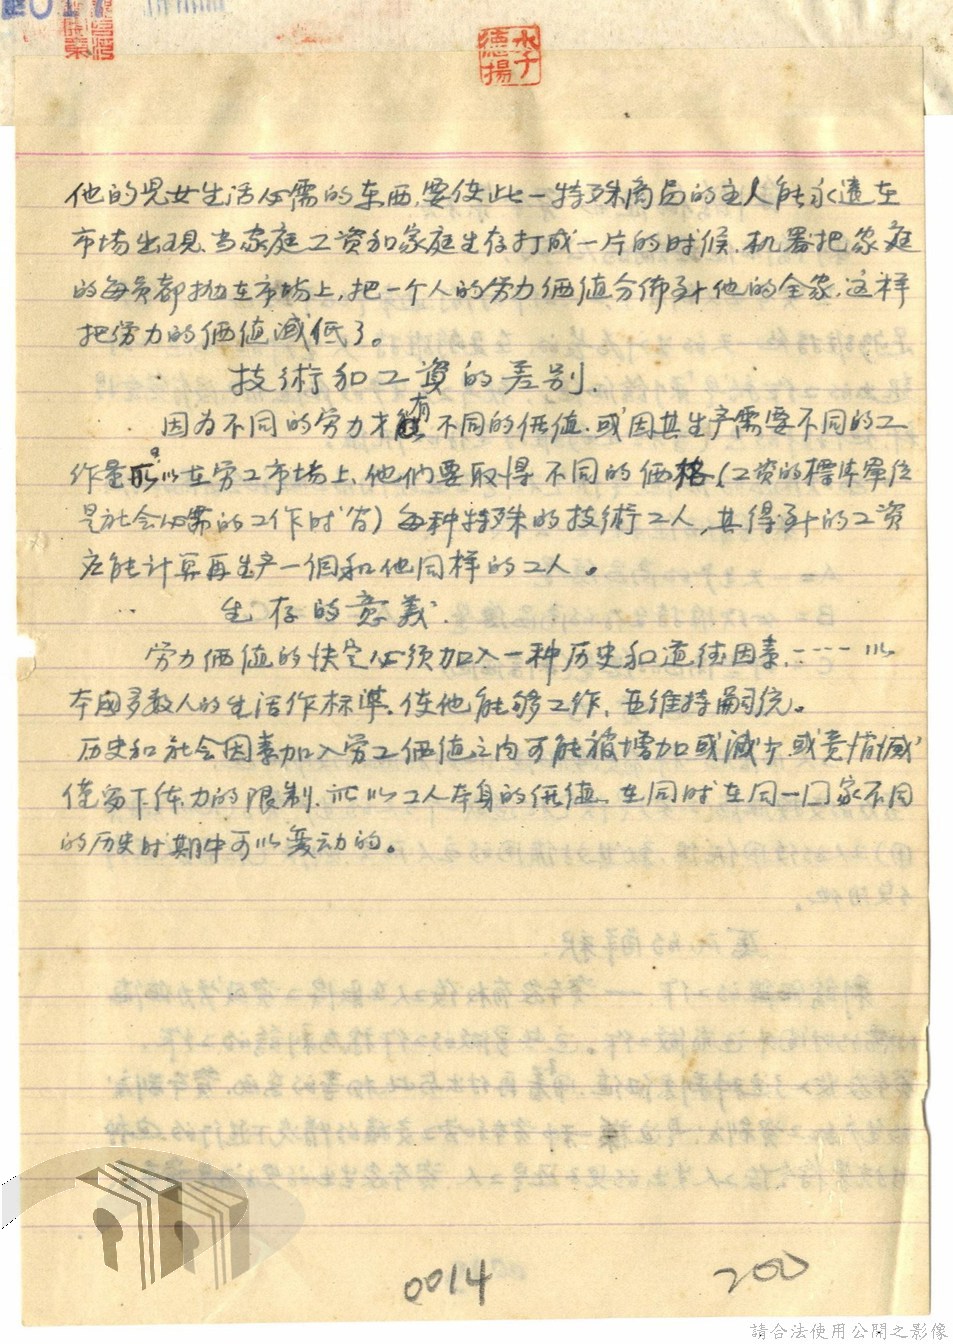 他的児女生活必需的东西,要使此一特殊商品的主人能永遠在
市场出现,当家庭工資和家庭生存打成一片的时候,机器把家庭
的每員都抛在市场上,把一个人的労力価值分佈到他的全家,这样
把労力的価值减低了。
技術和工資的差别.
因为不同的労力才能有不同的価值.或因其生产需要不同的工
作量,所以在労工市场上,他们要取得不同的価格,(工資的標准單位
是社会必需的工作时间)每种特殊的技術工人,其得到的工資
应能计算再生产一個和他同样的工人。
生存的意義.
労力価值的决定必须加入一种历史和道德因素,……以
本国多数人的生活作标準,使他能够工作,且维持嗣统。
历史和社会因素加入労工価值之内可能被增加或减少,或竟消减
僅留下体力的限制,所以工人本身的価值,在同时在同一国家不同
的历史时期中可以变动的。
0014
200
請合法使用公開之影像